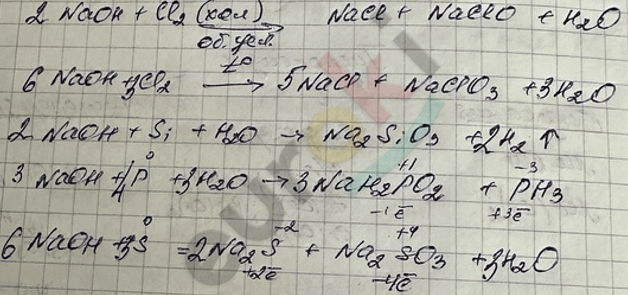 2 NaOH + Cl2 (хол) об.усл. → NaCl + NaClO + H2O
6 NaOH + 3Cl2 t° → 5NaCl + NaClO3 + 3H2O
2 NaOH + Si + H2O → Na2SiO3 + 2H2 ↑
0 +1 -3
3 NaOH + 4P + 3H2O → 3NaH2PO2 + PH3
-1ē +3ē
0 -2 +4
6 NaOH + 3S = 2Na2S + Na2SO3 + 3H2O
+2ē -4ē
euroki